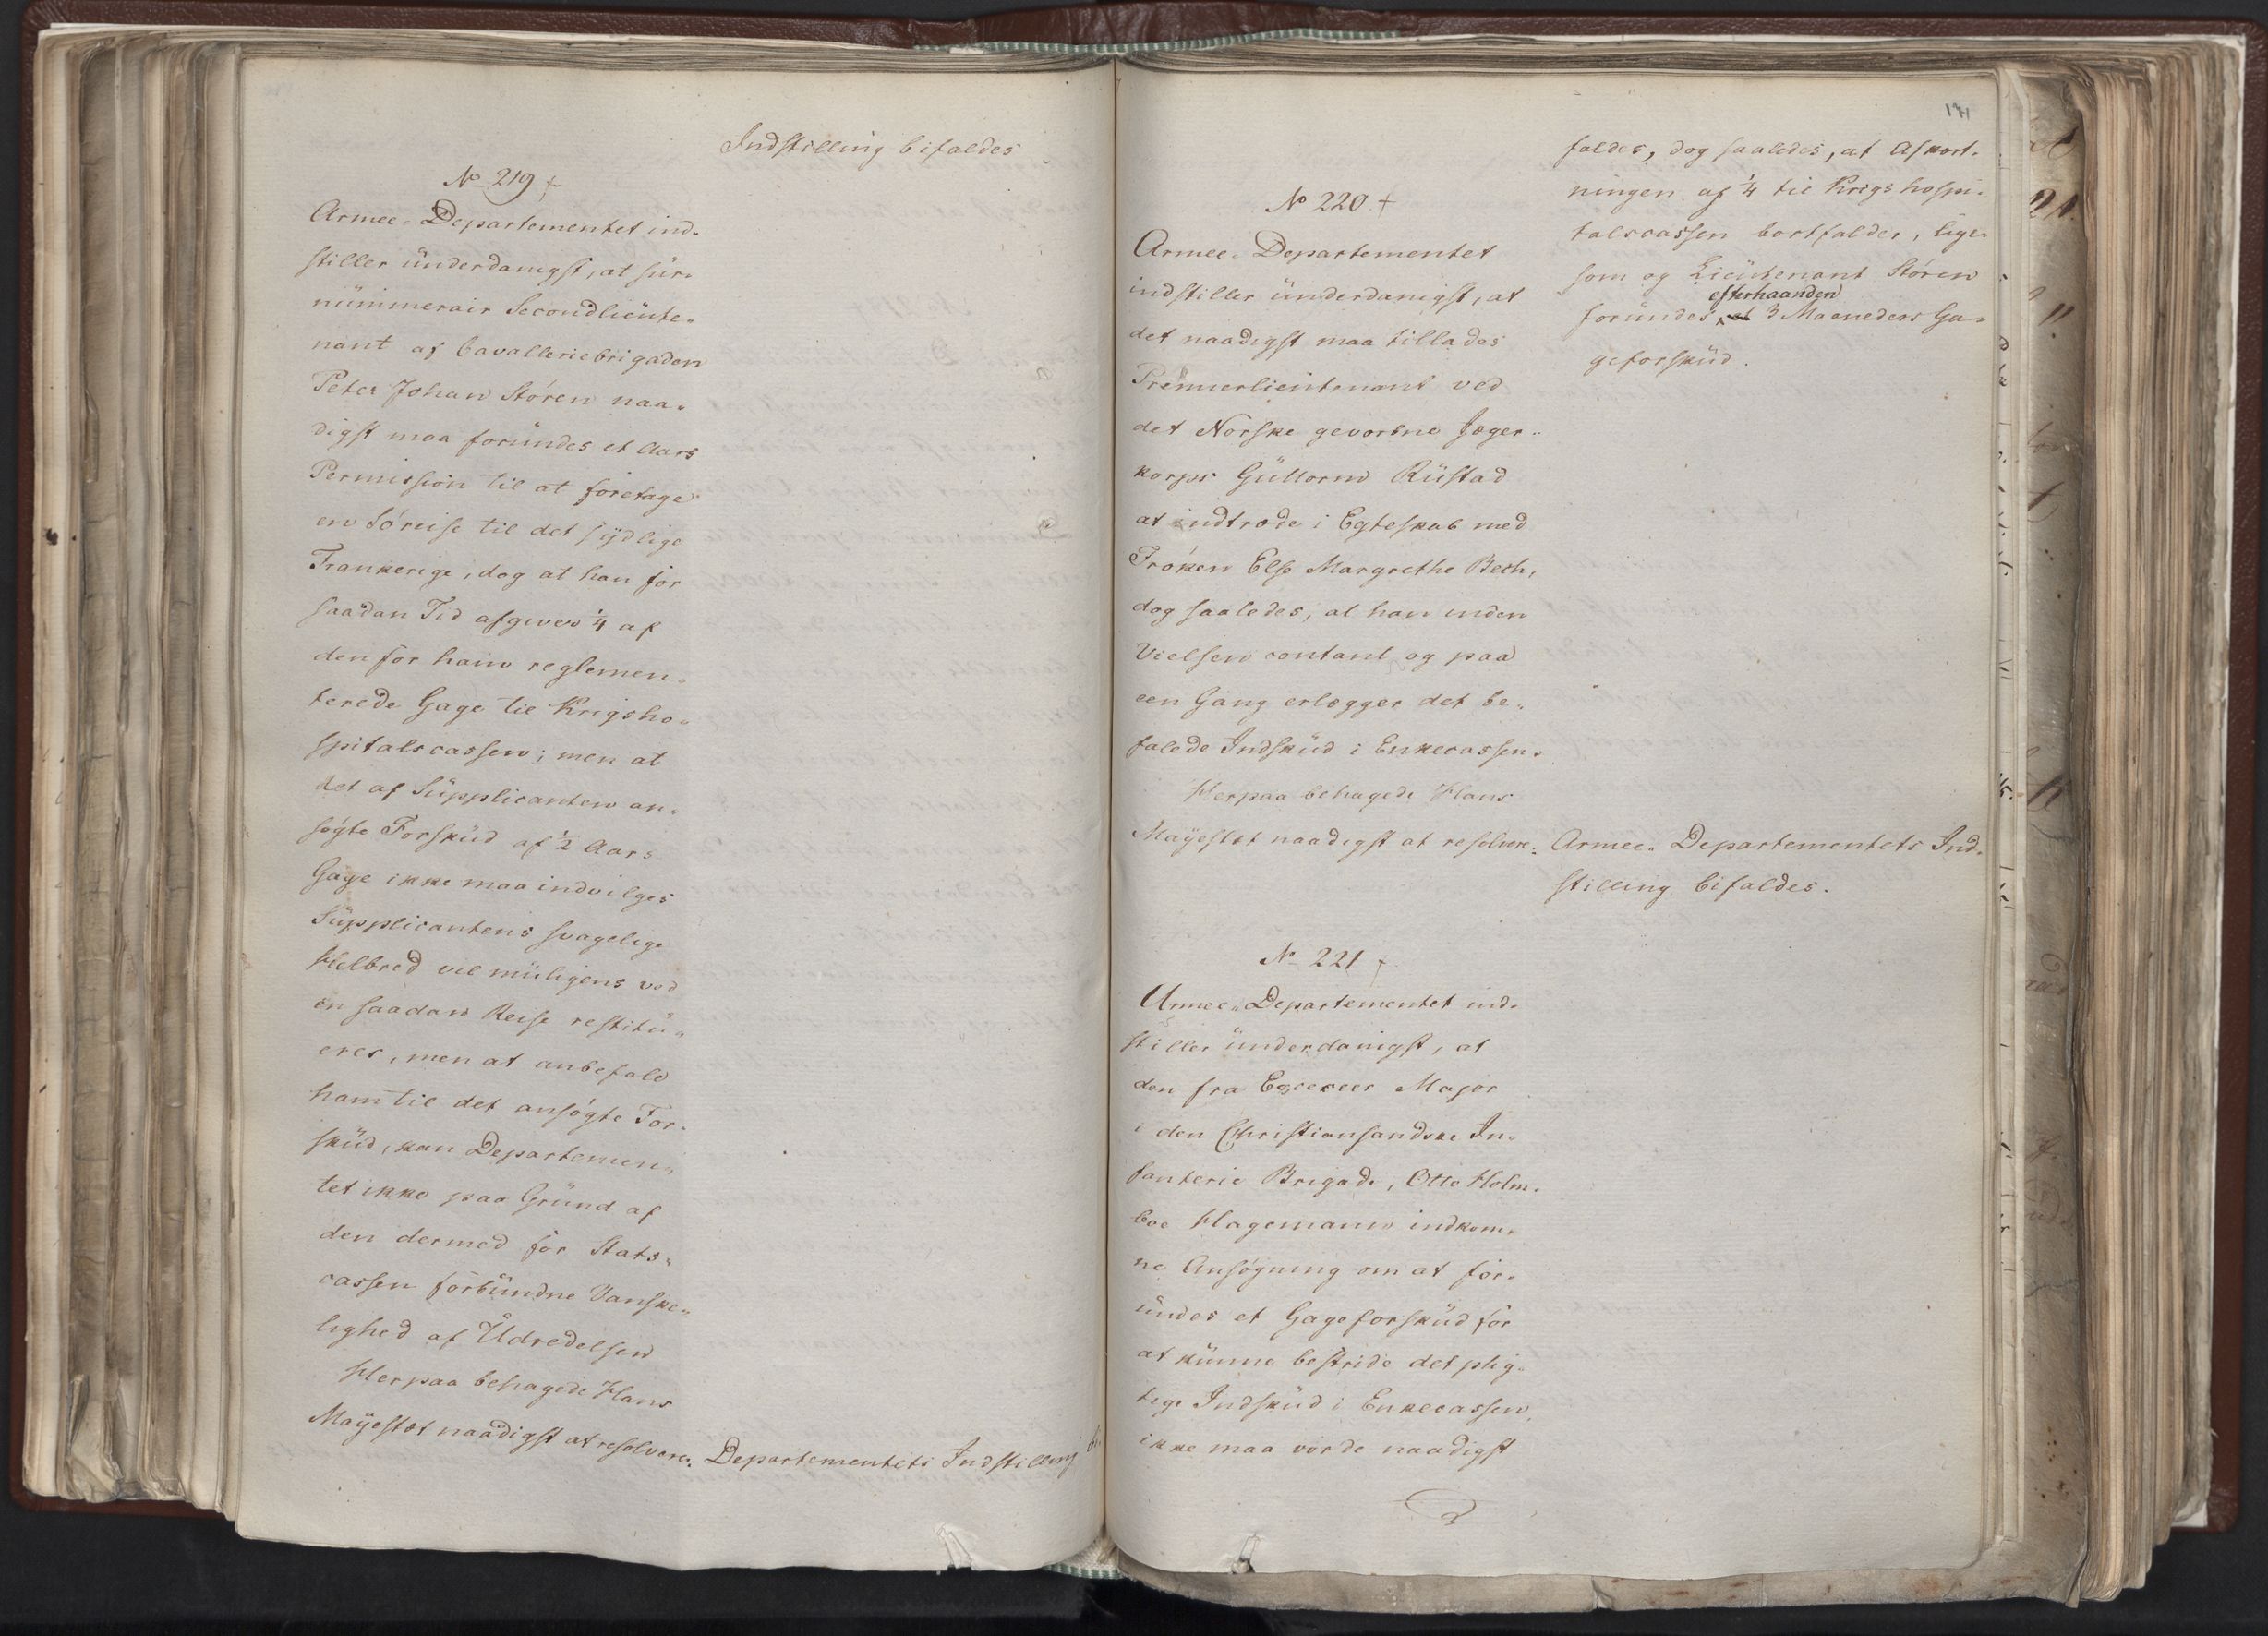 Indstilling bifaldes
No 219
Armee-Departementet ind-
stiller ünderdanigst, at sür-
nümmerair Secondlieüte-
nant af Cavalleriebrigaden
Peter Johan Stören naa-
digst maa foründes et Aars
Permission til at foretage
en Söreise til det sydlige
Frankerige, dog at han for
saadan Tid afgiver 1/4 af
den for ham reglemen-
terede Gage til Krigsho-
spitalscassen; men at
det af Süpplicanten an-
søgte Forsküd af 1/2 Aars
Gage ikke maa indvilges
Süpplicantens svagelige
Helbred vil müligens ved
en saadan Reise restitü-
eres, men at anbefale
ham til det ansøgte For-
sküd, kan Departemen-
tet ikke paa Gründ af
den dermed for Stats-
cassen forbündne Vanske-
lighed af Üdredelsen
Herpaa behagede Hans
Mayestæt naadigst at resolvere: Departementets Indstilling bi-
171
faldes, dog saaledes, at Afkort-
ningen af 1/4 til Krigshospi-
talscassen bortfalder, lige-
som og Lieütenant Stören
efterhaanden
foründes et 3 Maaneders Ga-
geforsküd.
No 220
Armee-Departementet
indstiller ünderdanigst, at
det naadigst maa tillades
Premierlieutenant ved
det Norske gevorbne Jæger-
korps Güttorm Rüstad
at indtræde i Egteskab med
Fröken Else Margrethe Beth,
dog saaledes, at han inden
Vielsen contant og paa
een Gang erlægger det be-
falede Indsküd i Enkecassen.
Herpaa behagede Hans
Mayestæt naadigst at resolvere: Armee-Departementets Ind-
stilling bifaldes.
No 221
Armee-Departementet ind-
stiller ünderdanigst, at
den fra Exerceer Major
i den Christiansandske In-
fanterie Brigade, Otto Holm-
boe Hagemann indkom-
ne Ansøgning om at for-
ündes et Gageforsküd for
at künne bestride det plig-
tige Indsküd i Enkecassen,
ikke maa vorde naadigst